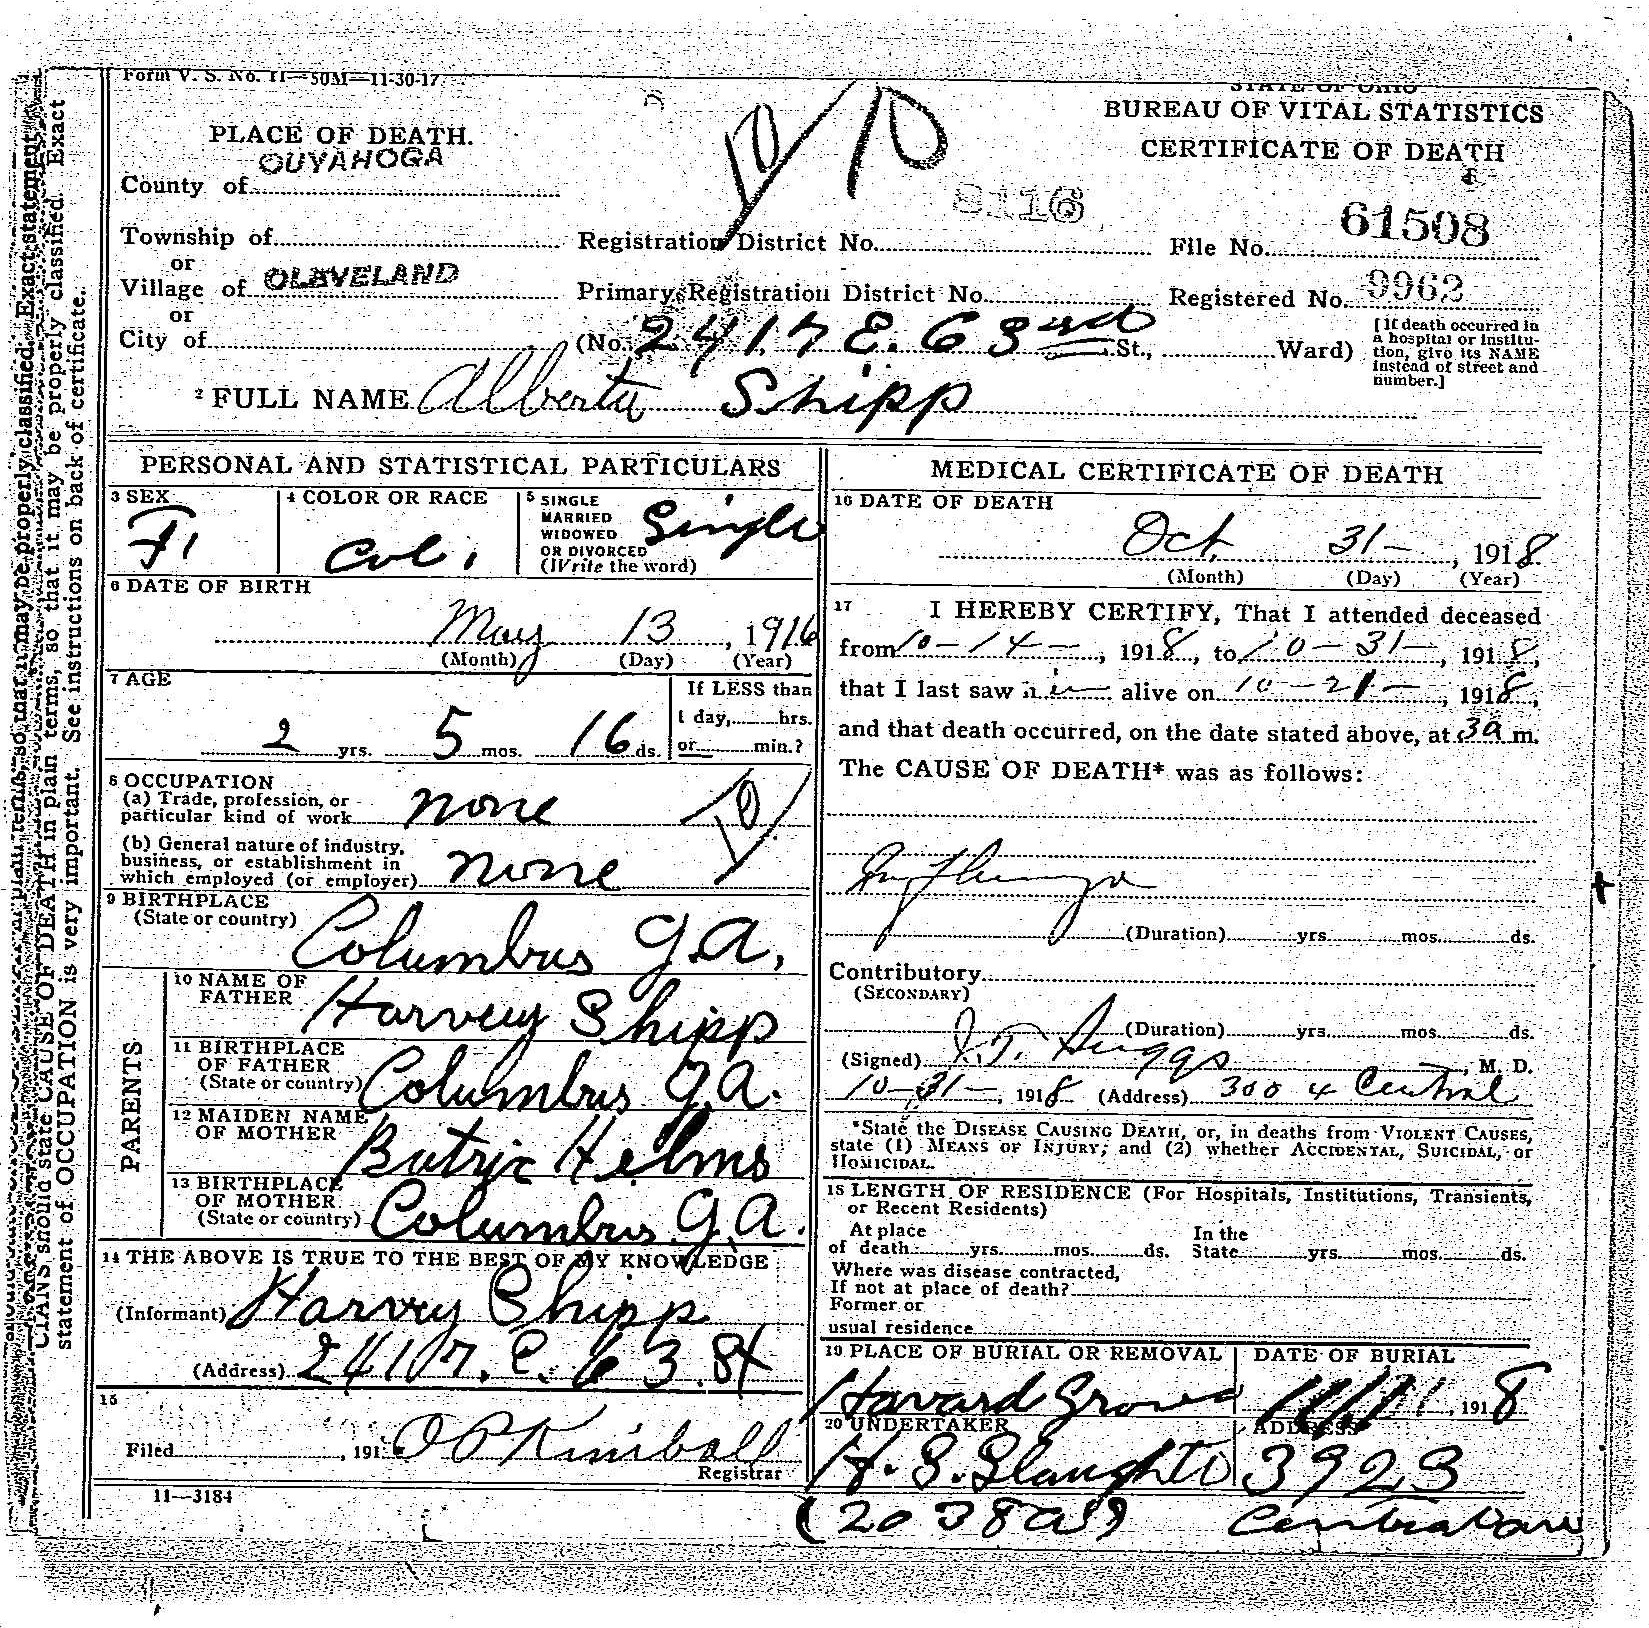 Form V. S. No. 11—50M—11-30-17
STATE OF OHIO
BUREAU OF VITAL STATISTICS
CERTIFICATE OF DEATH
PLACE OF DEATH.
CUYAHOGA
County of
8116
61508
Township of
Registration District No.
File No.
or
Village of CLEVELAND
Primary Registration District No.
Registered No. 9962
or
City of
(No. 2417 E. 63rd St., Ward)
[If death occurred in
a hospital or institu-
tion, give its NAME
instead of street and
number.]
2 FULL NAME Alberta Shipp
PERSONAL AND STATISTICAL PARTICULARS
3 SEX
F.
4 COLOR OR RACE
Col.
5 SINGLE
MARRIED
WIDOWED
OR DIVORCED
(Write the word)
Single
6 DATE OF BIRTH
May 13, 1916
(Month) (Day) (Year)
7 AGE
2 yrs. 5 mos. 16 ds.
If LESS than
1 day, hrs.
or min.?
8 OCCUPATION
(a) Trade, profession, or
particular kind of work none
(b) General nature of industry,
business, or establishment in
which employed (or employer) none
9 BIRTHPLACE
(State or country)
Columbus Ga.
PARENTS
10 NAME OF
FATHER
Harvey Shipp
11 BIRTHPLACE
OF FATHER
(State or country)
Columbus Ga.
12 MAIDEN NAME
OF MOTHER
Butrje Helms
13 BIRTHPLACE
OF MOTHER
(State or country)
Columbus. Ga.
14 THE ABOVE IS TRUE TO THE BEST OF MY KNOWLEDGE
(Informant) Harvey Shipp
(Address) 2417. E. 63. St
15
Filed , 191 O P Kimball
Registrar
11—3184
MEDICAL CERTIFICATE OF DEATH
16 DATE OF DEATH
Oct. 31 - , 1918.
(Month) (Day) (Year)
17 I HEREBY CERTIFY, That I attended deceased
from 10-14-, 1918, to 10-31-, 1918,
that I last saw h alive on 10-21-, 1918,
and that death occurred, on the date stated above, at 3a m.
The CAUSE OF DEATH* was as follows:
(Duration) yrs. mos. ds.
Contributory
(SECONDARY)
(Duration) yrs. mos. ds.
(Signed) J. T. Suggs, M. D.
10-31-, 1918 (Address) 3004 Central
*State the DISEASE CAUSING DEATH, or, in deaths from VIOLENT CAUSES,
state (1) MEANS OF INJURY; and (2) whether ACCIDENTAL, SUICIDAL, or
HOMICIDAL.
18 LENGTH OF RESIDENCE (For Hospitals, Institutions, Transients,
or Recent Residents)
At place
of death yrs. mos. ds.
In the
State yrs. mos. ds.
Where was disease contracted,
If not at place of death?
Former or
usual residence
19 PLACE OF BURIAL OR REMOVAL
Havard Grove
DATE OF BURIAL
1918
20 UNDERTAKER
H. S. Slaughte
ADDRESS
3923
(2038a)
Central Ave
statement of OCCUPATION is very important. See instructions on back of certificate.
CIANS should state CAUSE OF DEATH in plain terms, so that it may be properly classified. Exact